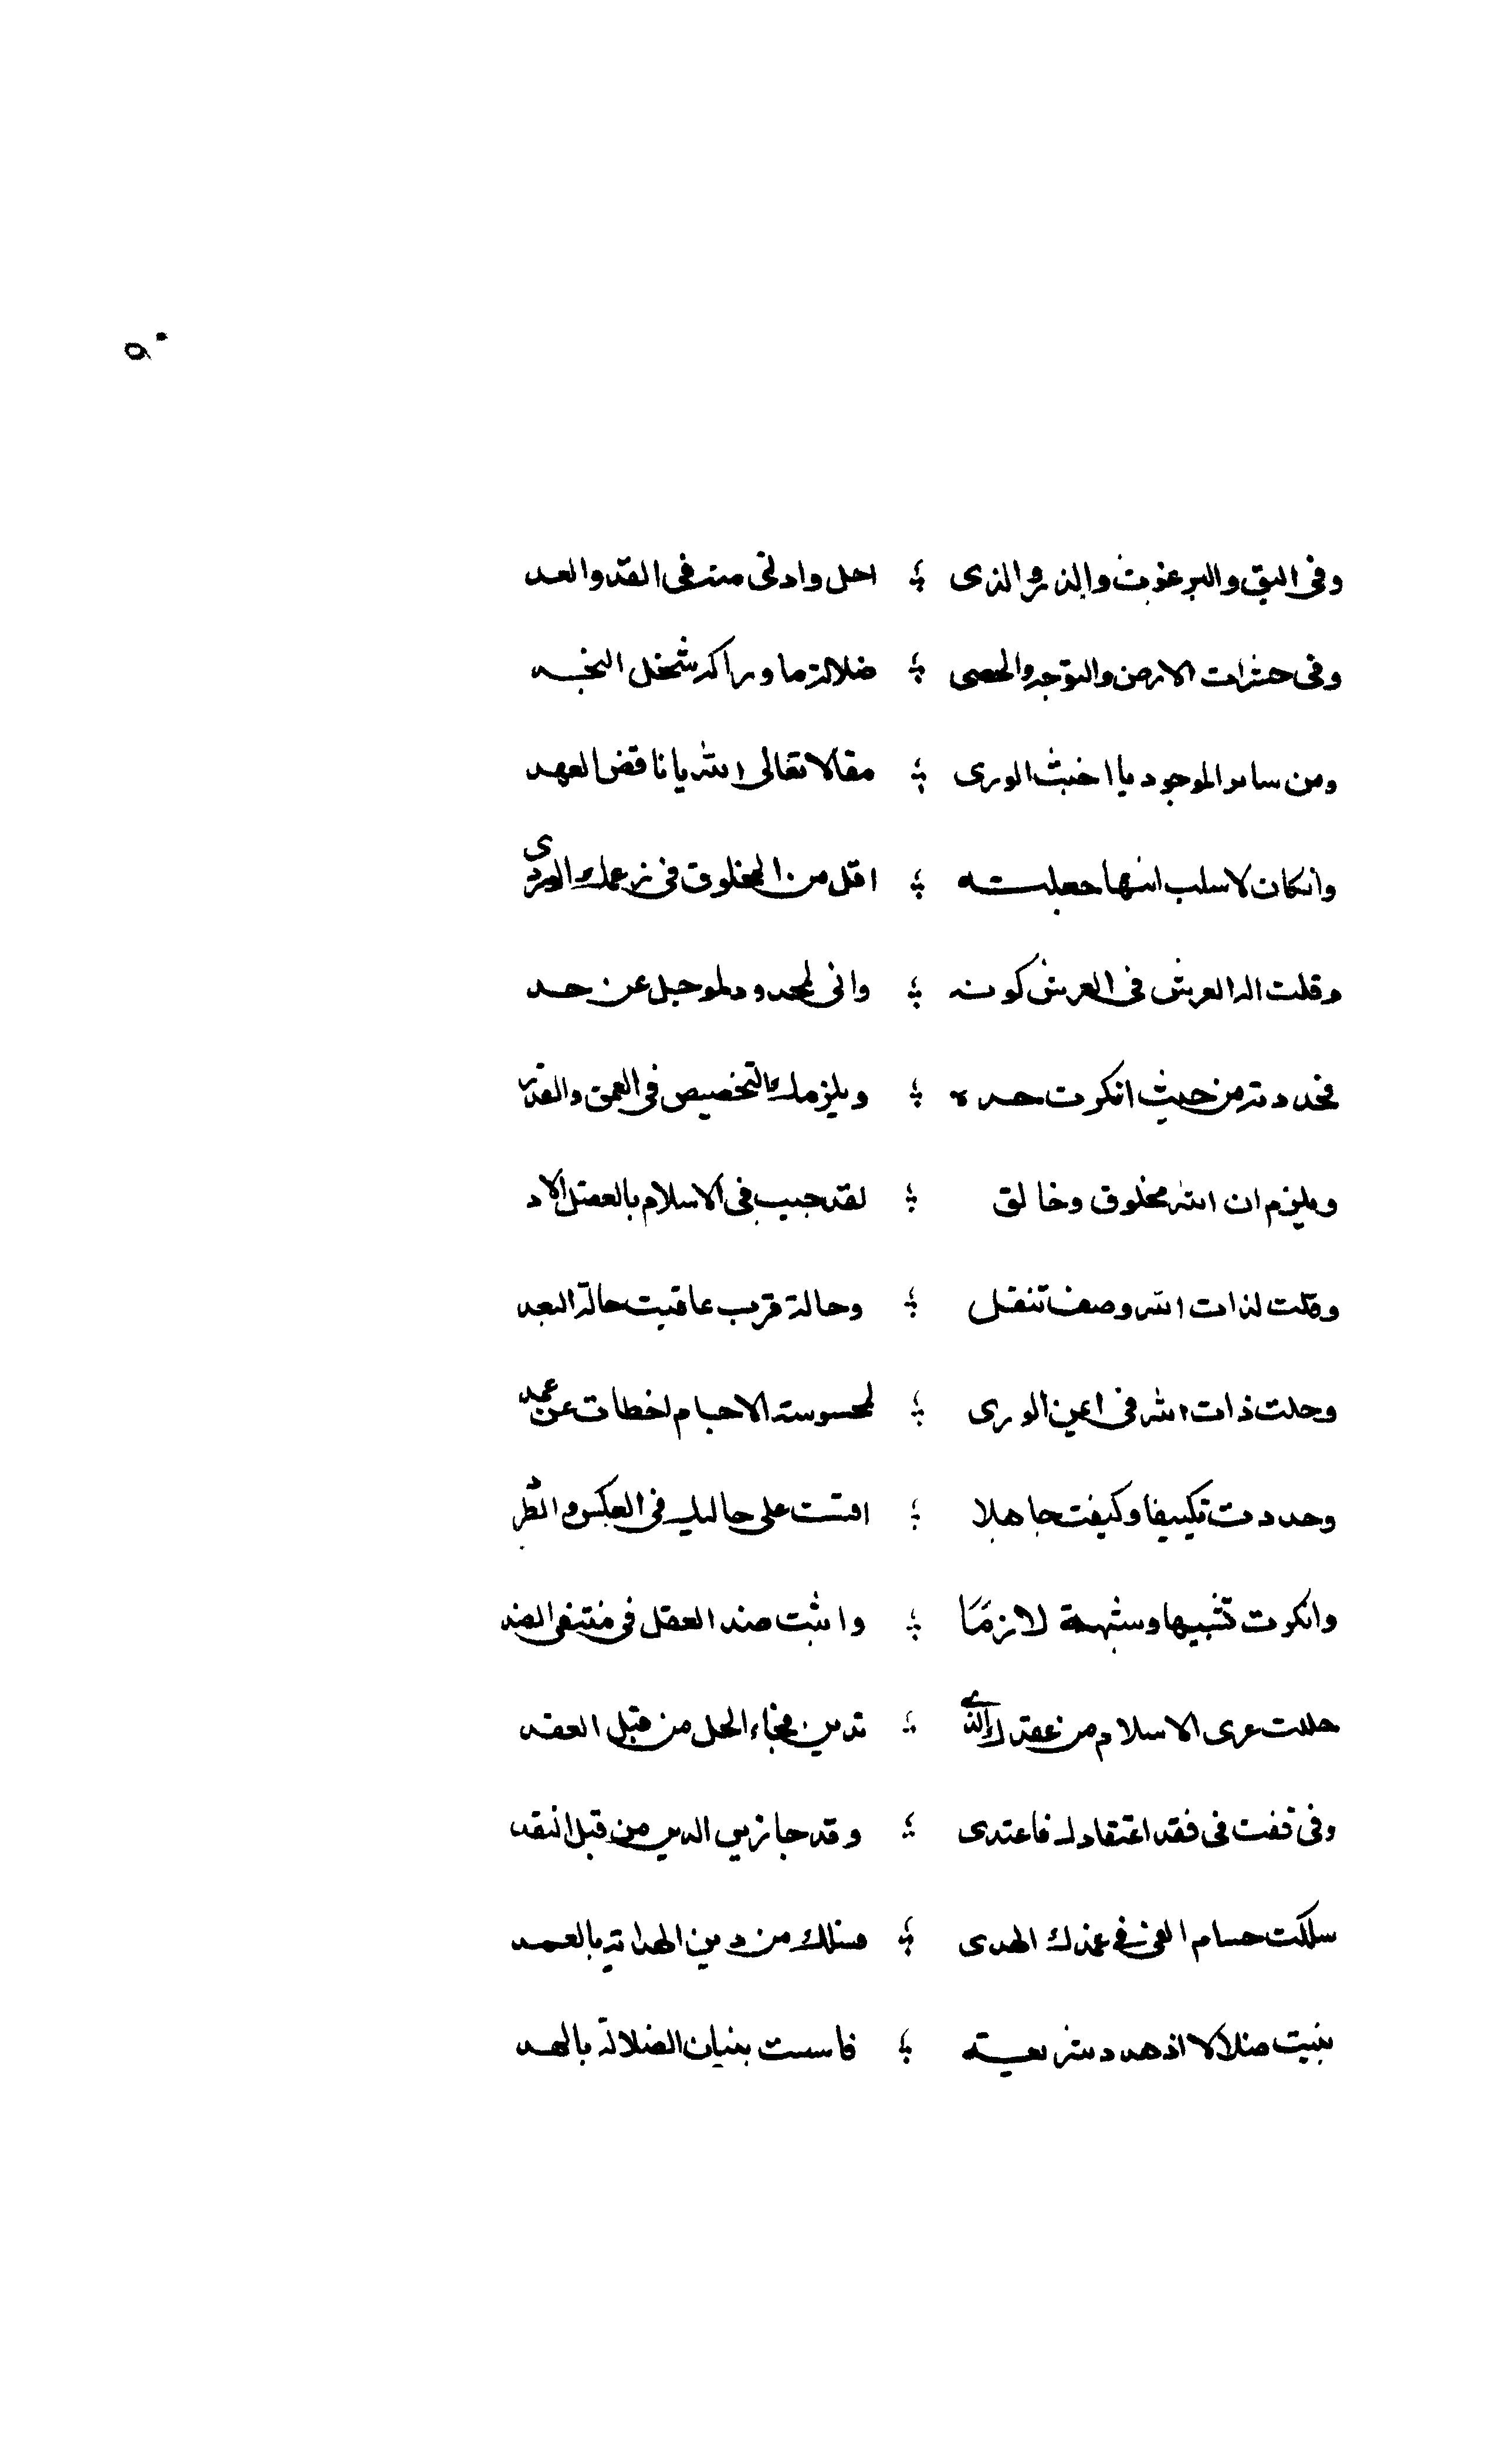 ٥٠
وفي البق والبرغوث والذر والذي ؛ احل وادنى منه في القد والعد
وفي حشرات الارض والتوجه والحصى ؛ ضلالة ما وراكه شخل النجد
ومن ساير الموجود يا اخبث الورى ؛ مقالا تعالى الله يا ناقض العهد
وانكان لاسلب انتها جعلته ؛ اقل من المخلوق في زعمك المردي
وقلت اله العرش في العرش كونه ؛ واني لمحدود لموجبل عن حد
فحددته من حيث انكرت حده ؛ ويلزمك التخصيص في العمق والقد
ويلزم ان الله مخلوق وخالق ؛ لقد جيت في الاسلام بالمعضل الاد
وقلت لذات الله وصف تنقل ؛ وحالة قرب عاقبت حالة البعد
وحلت ذات الله في اعين الورى ؛ لمحسوسة الاجسام اخطات عن عمد
وحددت تكييفا وكيفت جاهلا ؛ اقست على حاليك في العكس والطرد
وانكرت تشبيها وشبهة لازما ؛ واثبت ضد العقل في منتفى الضد
حللت عرى الاسلام من عقدك الذي ؛ تدين فجاء الحل من قبل العقد
وفي قفت في فقد اعتقادك فاعتدى ؛ وقد جازيي الدين من قبل النقد
سلكت حسام الغي في غمدك الهدى ؛ فسلك من دين الهداية بالعمد
بنيت ضلالا اذ هددت شريعة ؛ فاسست بنيان الضلالة بالهد